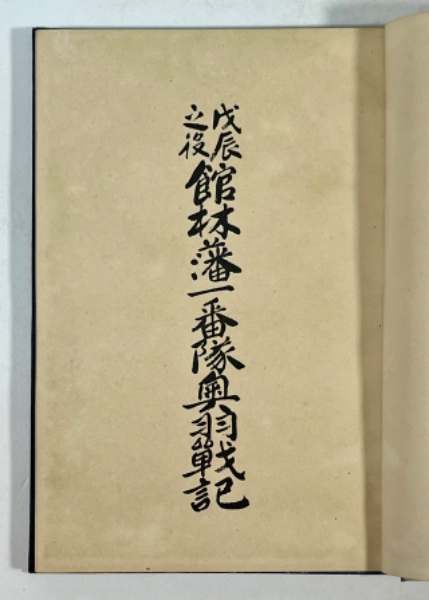 戊辰
之役
館林藩一番隊奥羽戰記